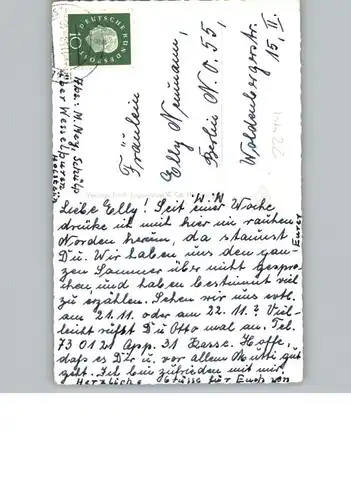 DEUTSCHE BUNDESPOST
10
Abs: M. Mey. Schülp
über Wesselburen
Holstein
Fräulein
Elly Neumann,
Berlin N. O. 55,
Woldenbergerstr.
15, II.
Liebe Elly! Seit einer Woche
drücke ich mich hier im rauhen
Norden herum, da staunst
Du. Wir haben uns den gan-
zen Sommer über nicht gespro-
chen, und haben bestimmt viel
zu erzählen. Sehen wir uns evtl.
am 21.11. oder am 22.11.? Viel-
leicht rufst Du Otto mal an. Tel.
73 01 21 App. 31 Kasse. Hoffe,
dass es Dir u. vor allem Mutti gut
geht. Ich bin zufrieden mit mir.
Herzliche Grüsse für Euch von
Eurer